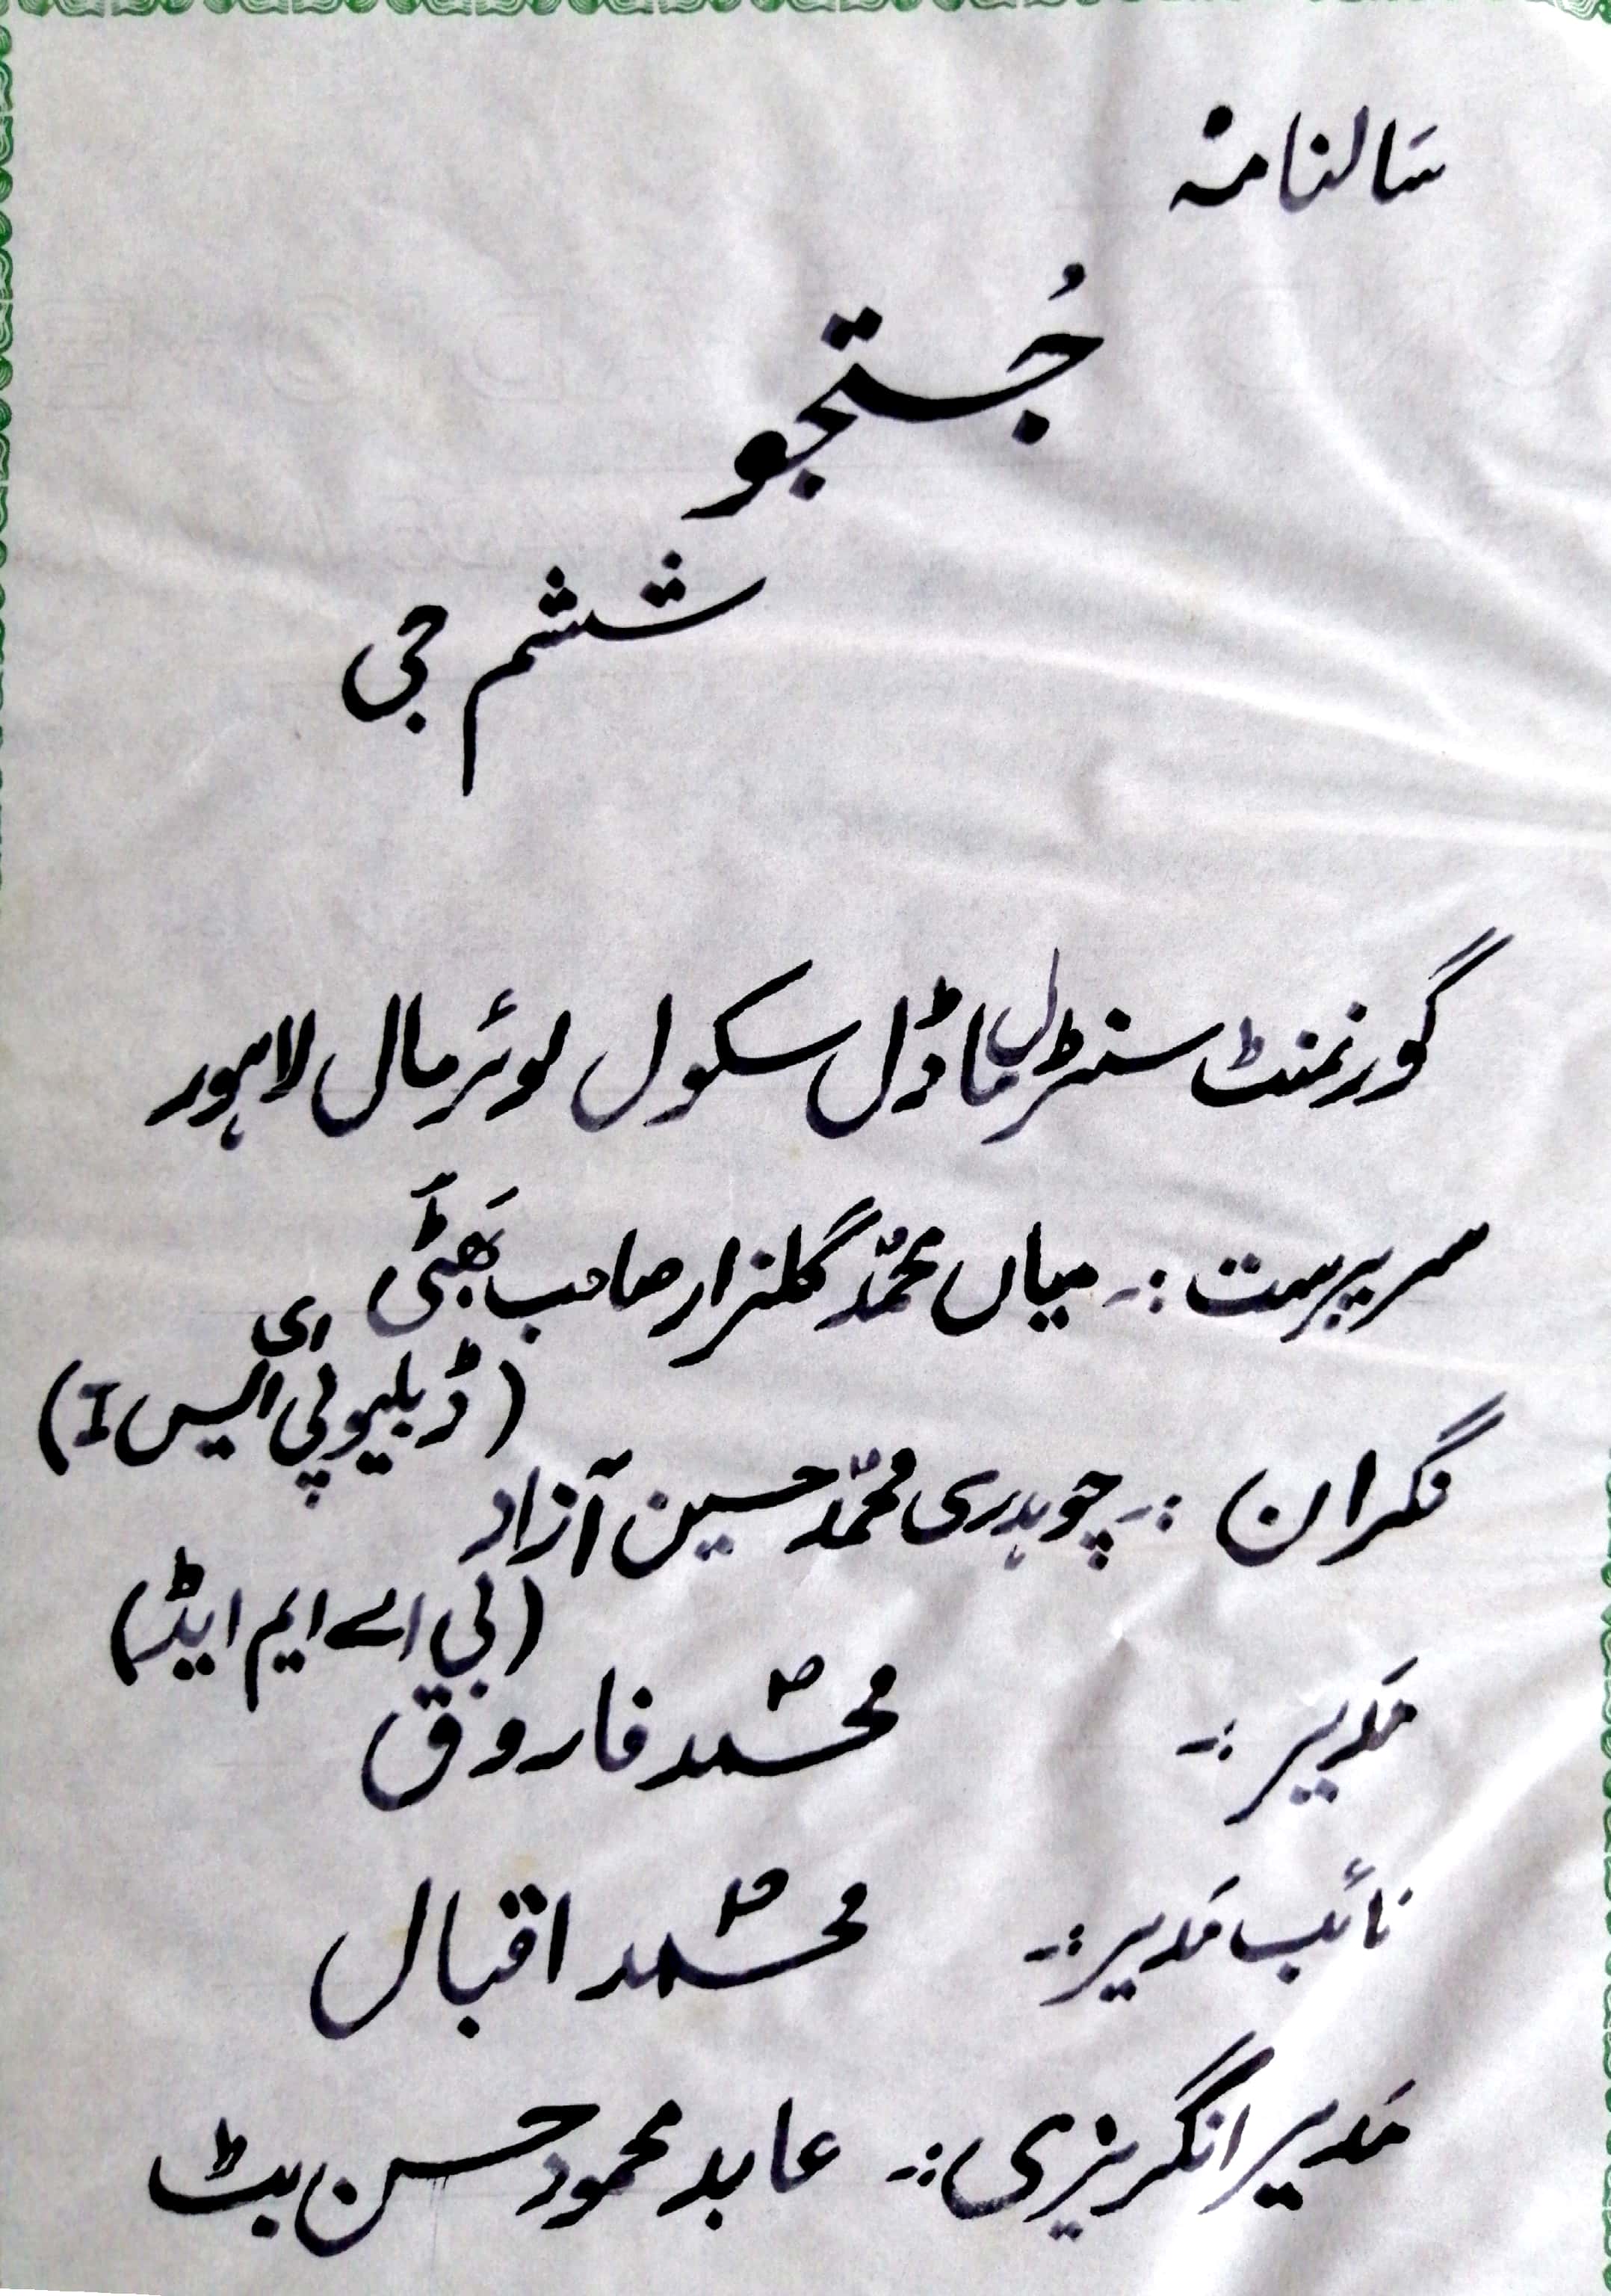 سالنامہ
جُستجو
ششم جی
گورنمنٹ سنٹرل ماڈل سکول لوئر مال لاہور
سرپرست :۔ میاں محمّد گلزار صاحب بَھٹَّی
(ڈبلیو پی ای ایس I)
نگران :۔ چوہدری محمّد حسین آزاد
(بی اے ایم ایڈ)
مَدیر :۔ محمّد فاروق
نائب مَدیر :۔ محمّد اقبال
مَدیر انگریزی :۔ عابد محمود حسن بٹ